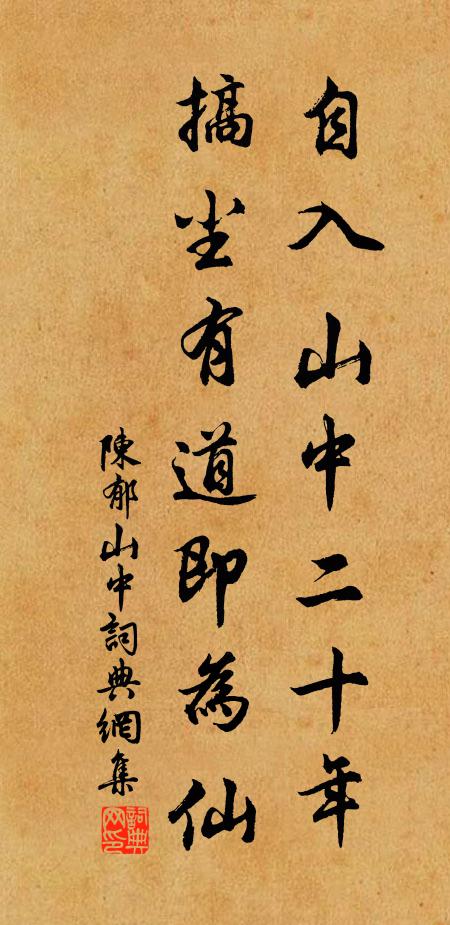 自入山中二十年
搞坐有道即為仙
陳郁山中詞典網集
詞典网印